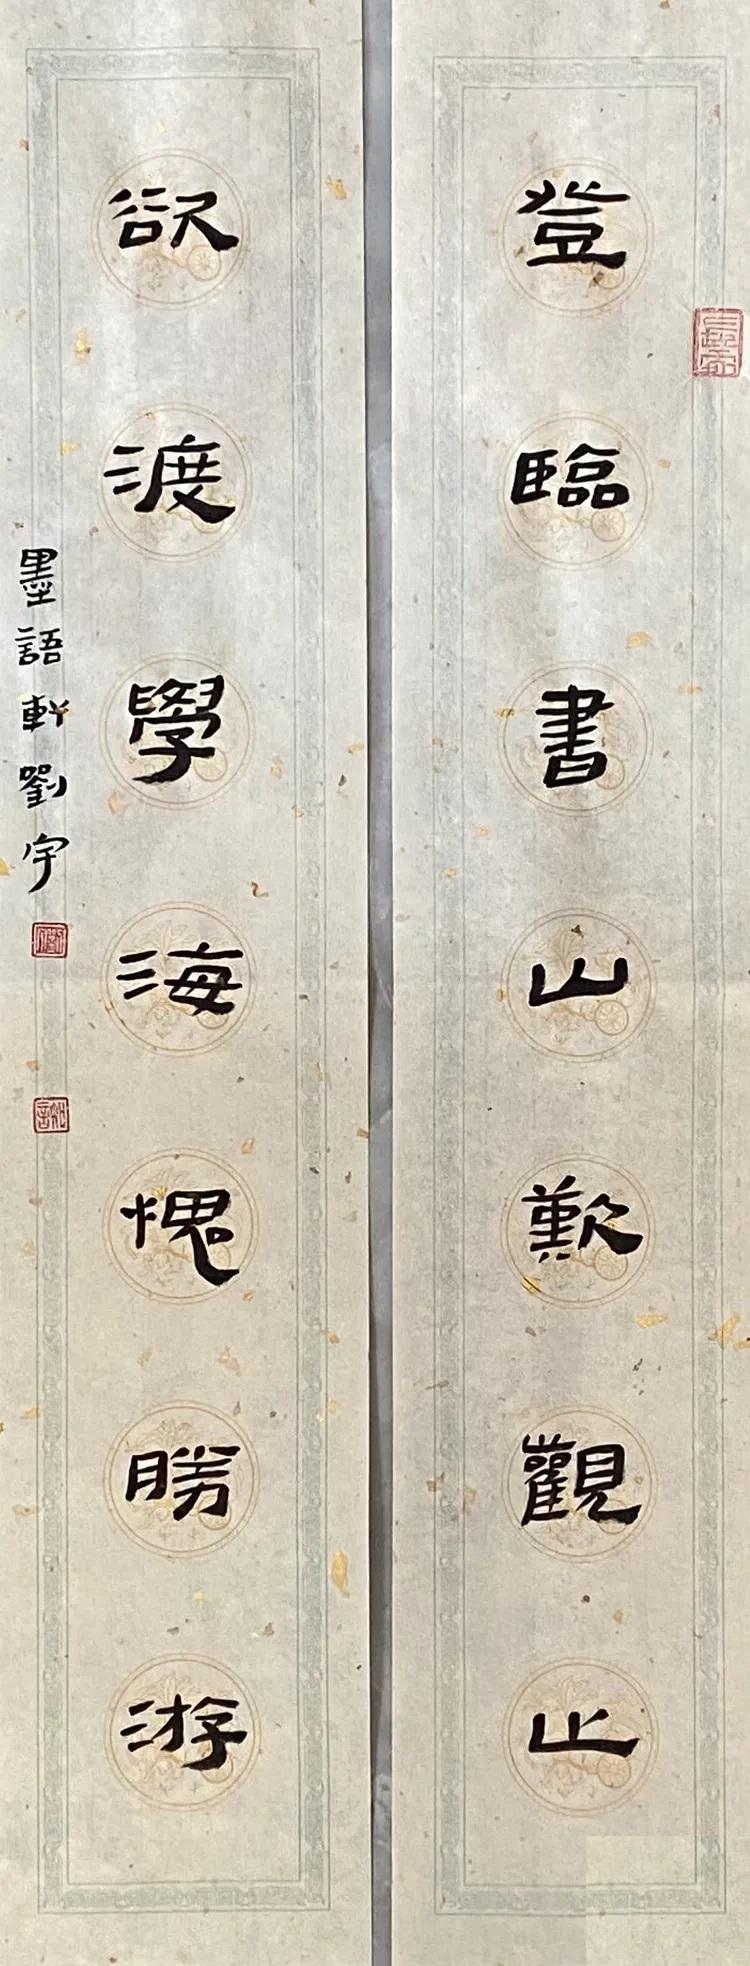 登臨書山歎觀止
欲渡學海愧勝游
墨語軒劉宇